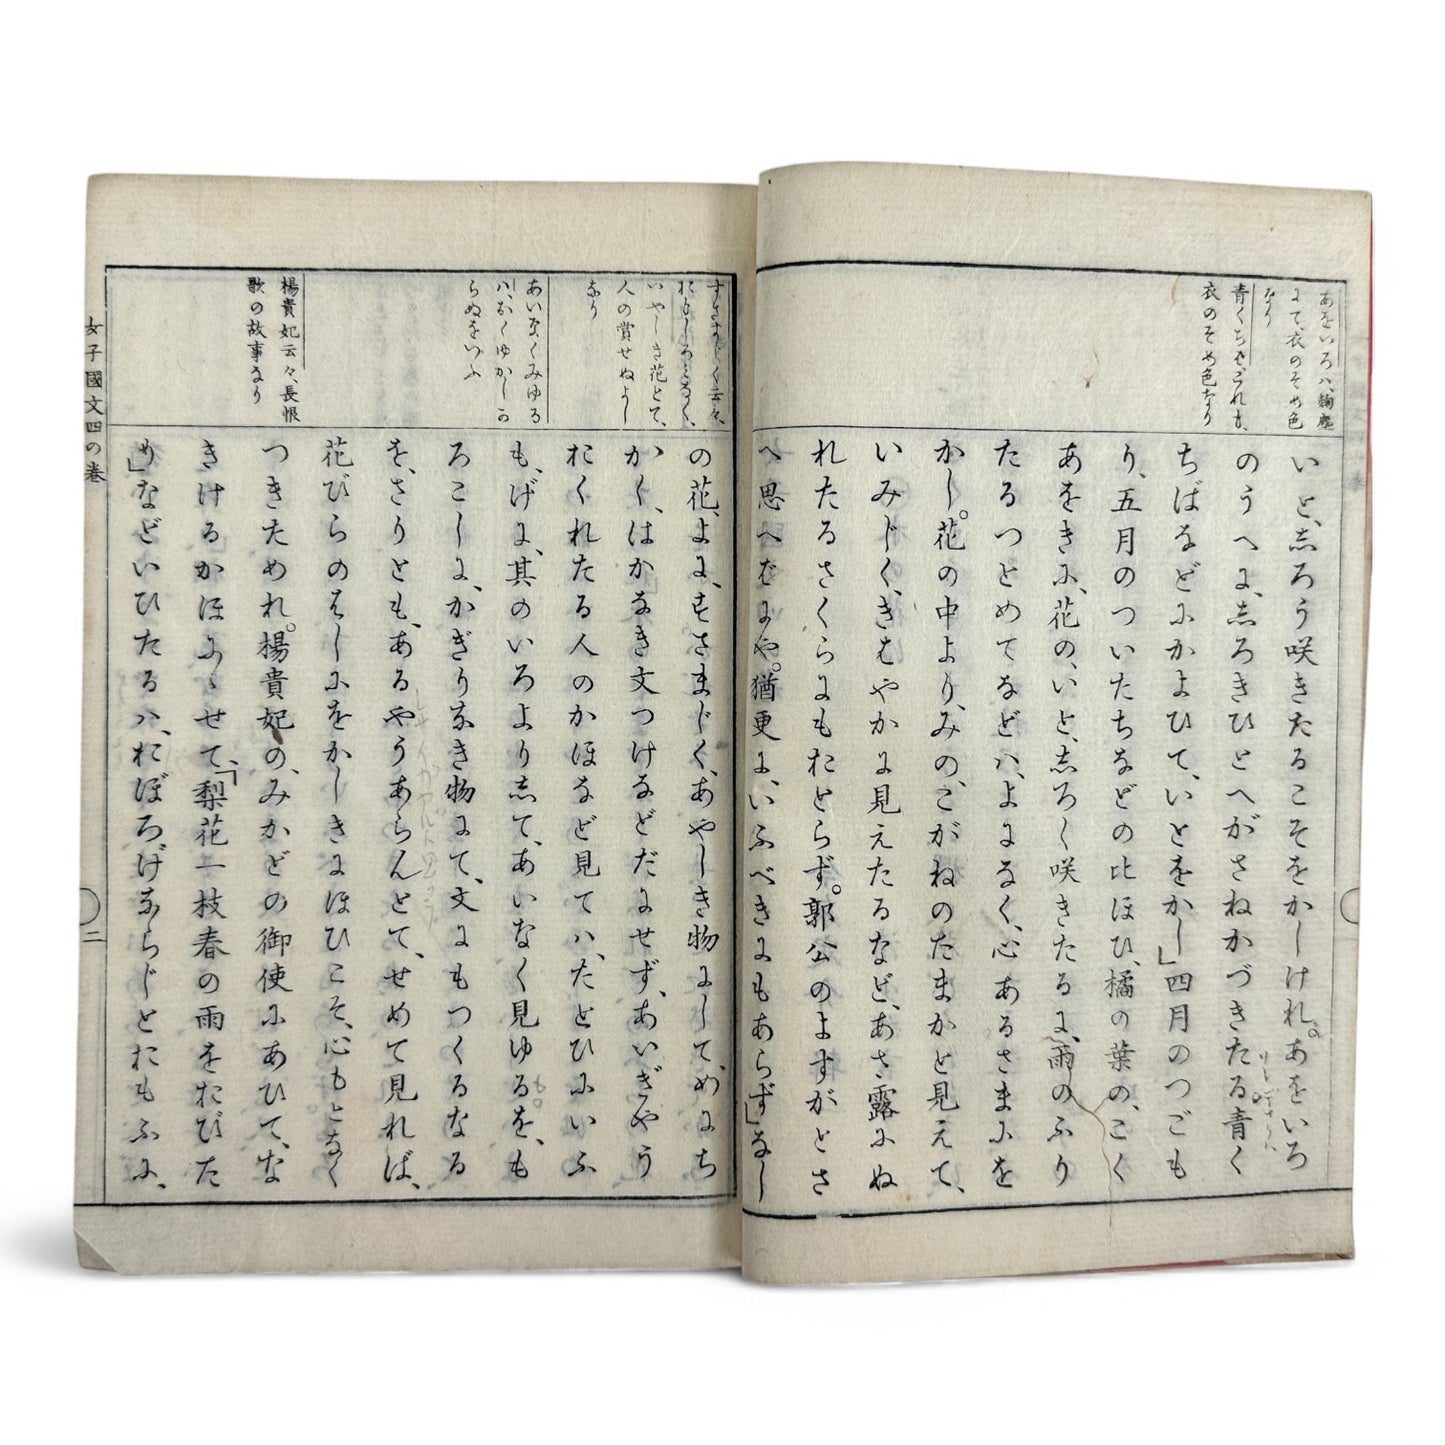 あをいろハ、麴塵
にて、衣のそめ色
なり
青くちばごれも、
衣のそめ色なり
いと、志ろう咲きたるこそをかしけれ。あをいろ
のうへに、志ろきひとへがさねかづきたる青く
ちばなどにかよひて、いとをかし」四月のつごも
り、五月のついたちなどの比ほひ、橘の葉の、こく
あをきに、花の、いと、志ろく咲きたるに、雨のふり
たるつとめてなどハ、よになく、心あるさまにを
かし。花の中より、みの、こがねのたまかと見えて、
いみじく、きはやかに見えたるなど、あさ露にぬ
れたるさくらにもおとらず。郭公のよすがとさ
へ思へばにや。猶更に、いふべきにもあらず」なし
すさまじく云々、
おもしろみなく、
いやしき花とて、
人の賞せぬよし
なり
あいなくみゆる
ハ、おくゆかしか
らぬをいふ
楊貴妃云々、長恨
歌の故事なり
の花、よに、すさまじく、あやしき物にして、めにち
かく、はかなき文つけなどだにせず、あいぎやう
おくれたる人のかほなど見てハ、たとひにいふ
も、げに、其のいろより志て、あいなく見ゆるを、も
ろこしに、かぎりなき物にて、文にもつくるなる
を、さりとも、あるやうあらんとて、せめて見れば、
花びらのはしにをかしきにほひこそ、心もとなく
つきためれ。楊貴妃の、みかどの御使にあひて、な
きけるかほに、せて、「梨花一枝春の雨をおびた
り」などいひたるハ、おぼろけならじとおもふに、
女子國文四の卷
二